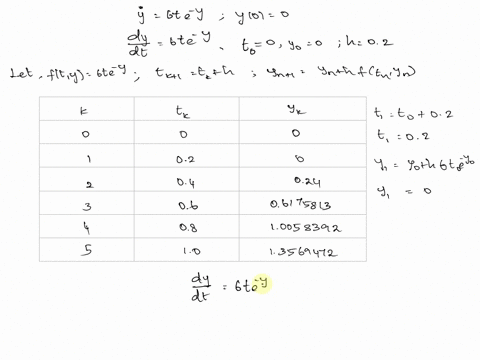 ẏ = 6te^-y ; y(0) = 0
dy/dt = 6te^-y , t₀ = 0, y₀ = 0 ; h = 0.2
Let f(t,y) = 6te^-y ; tₖ₊₁ = tₖ + h ; yₙ₊₁ = yₙ + h f(tₙ, yₙ)
k tₖ yₖ
0 0 0
1 0.2 0
2 0.4 0.24
3 0.6 0.6175813
4 0.8 1.0058392
5 1.0 1.3569472
t₁ = t₀ + 0.2
t₁ = 0.2
y₁ = y₀ + h 6t₀e^-y₀
y₁ = 0
dy/dt = 6te^-y